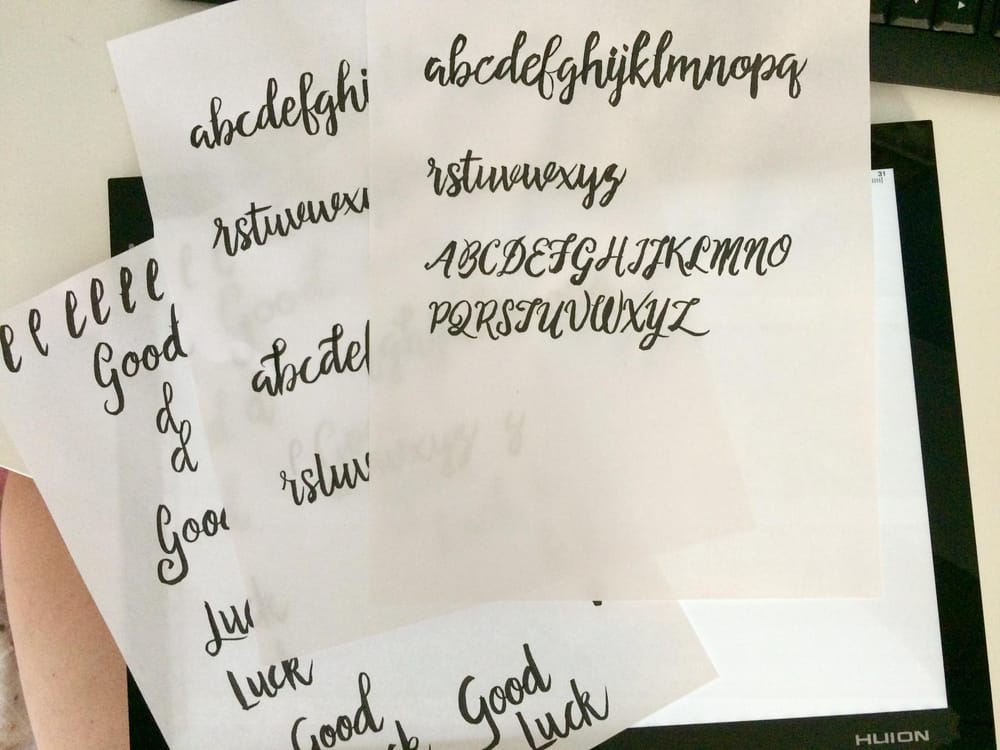 abcdefghijklmnopq
rstuvwxyz
ABCDEFGHIJKLMNO
PQRSTUVWXYZ
abcdefghi
rstuvwx
abcdef
rstuv
l l l l l l
Good
d
d
Good
Luck
Luck
Good
Good
Luck
31
HUION